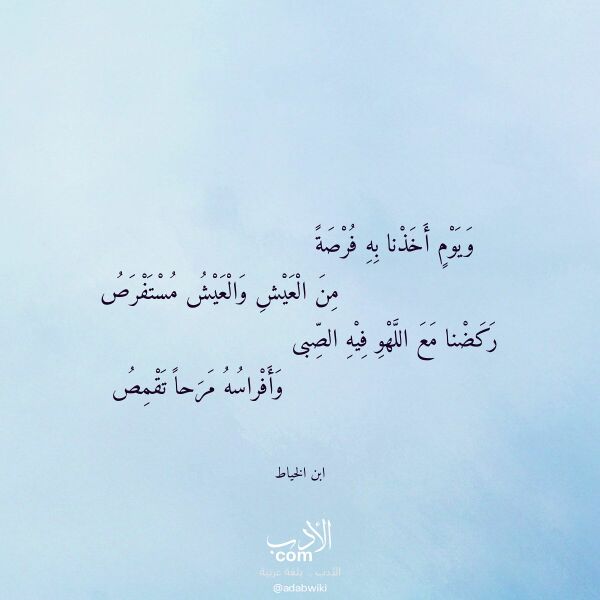 وَيَوْمٍ أَخَذْنا بِهِ فُرْصَةً
مِنَ الْعَيْشِ وَالْعَيْشُ مُسْتَفْرَصُ
رَكَضْنا مَعَ اللَّهْوِ فِيْهِ الصِّبى
وَأَفْراسُهُ مَرَحاً تَقْمِصُ
ابن الخياط
الأدب
com
الأدب .. بلغة عربية
@adabwiki